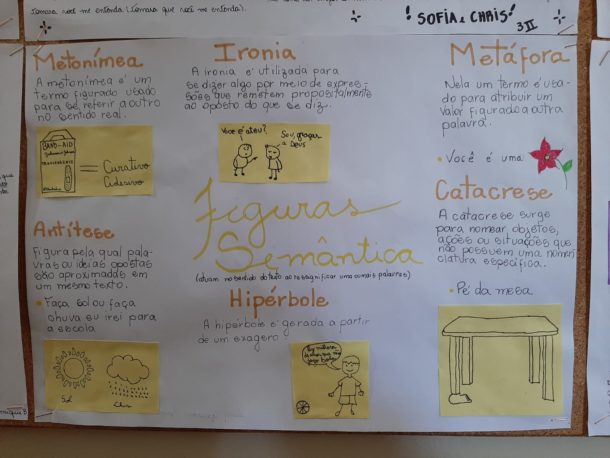 (tomara que você me entenda).
! SOFIA e CHAIS !
3 II
Metonímea
A metonímea é um
termo figurado usado
para se referir a outro
no sentido real.
BAND-AID
TRANSPARENTE
= Curativo
Adesivo
Antítese
Figura pela qual pala-
vras ou ideias opostas
são aproximadas em
um mesmo texto.
• Faça sol ou faça
chuva eu irei para
a escola
Sol
Chuva
Ironia
A ironia é utilizada para
se dizer algo por meio de expres-
sões que remetem propositalmente
ao oposto do que se diz.
Você é ateu?
Sou, graças
a Deus
Figuras
Semântica
(atuam no sentido do texto ao ressignificar uma ou mais palavras)
Hipérbole
A hipérbole é gerada a partir
de um exagero
Metáfora
Nela um termo é usa-
do para atribuir um
valor figurado a outra
palavra.
• Você é uma
Catacrese
A catacrese surge
para nomear objetos,
ações ou situações que
não possuem uma nomen
clatura específica.
• Pé da mesa